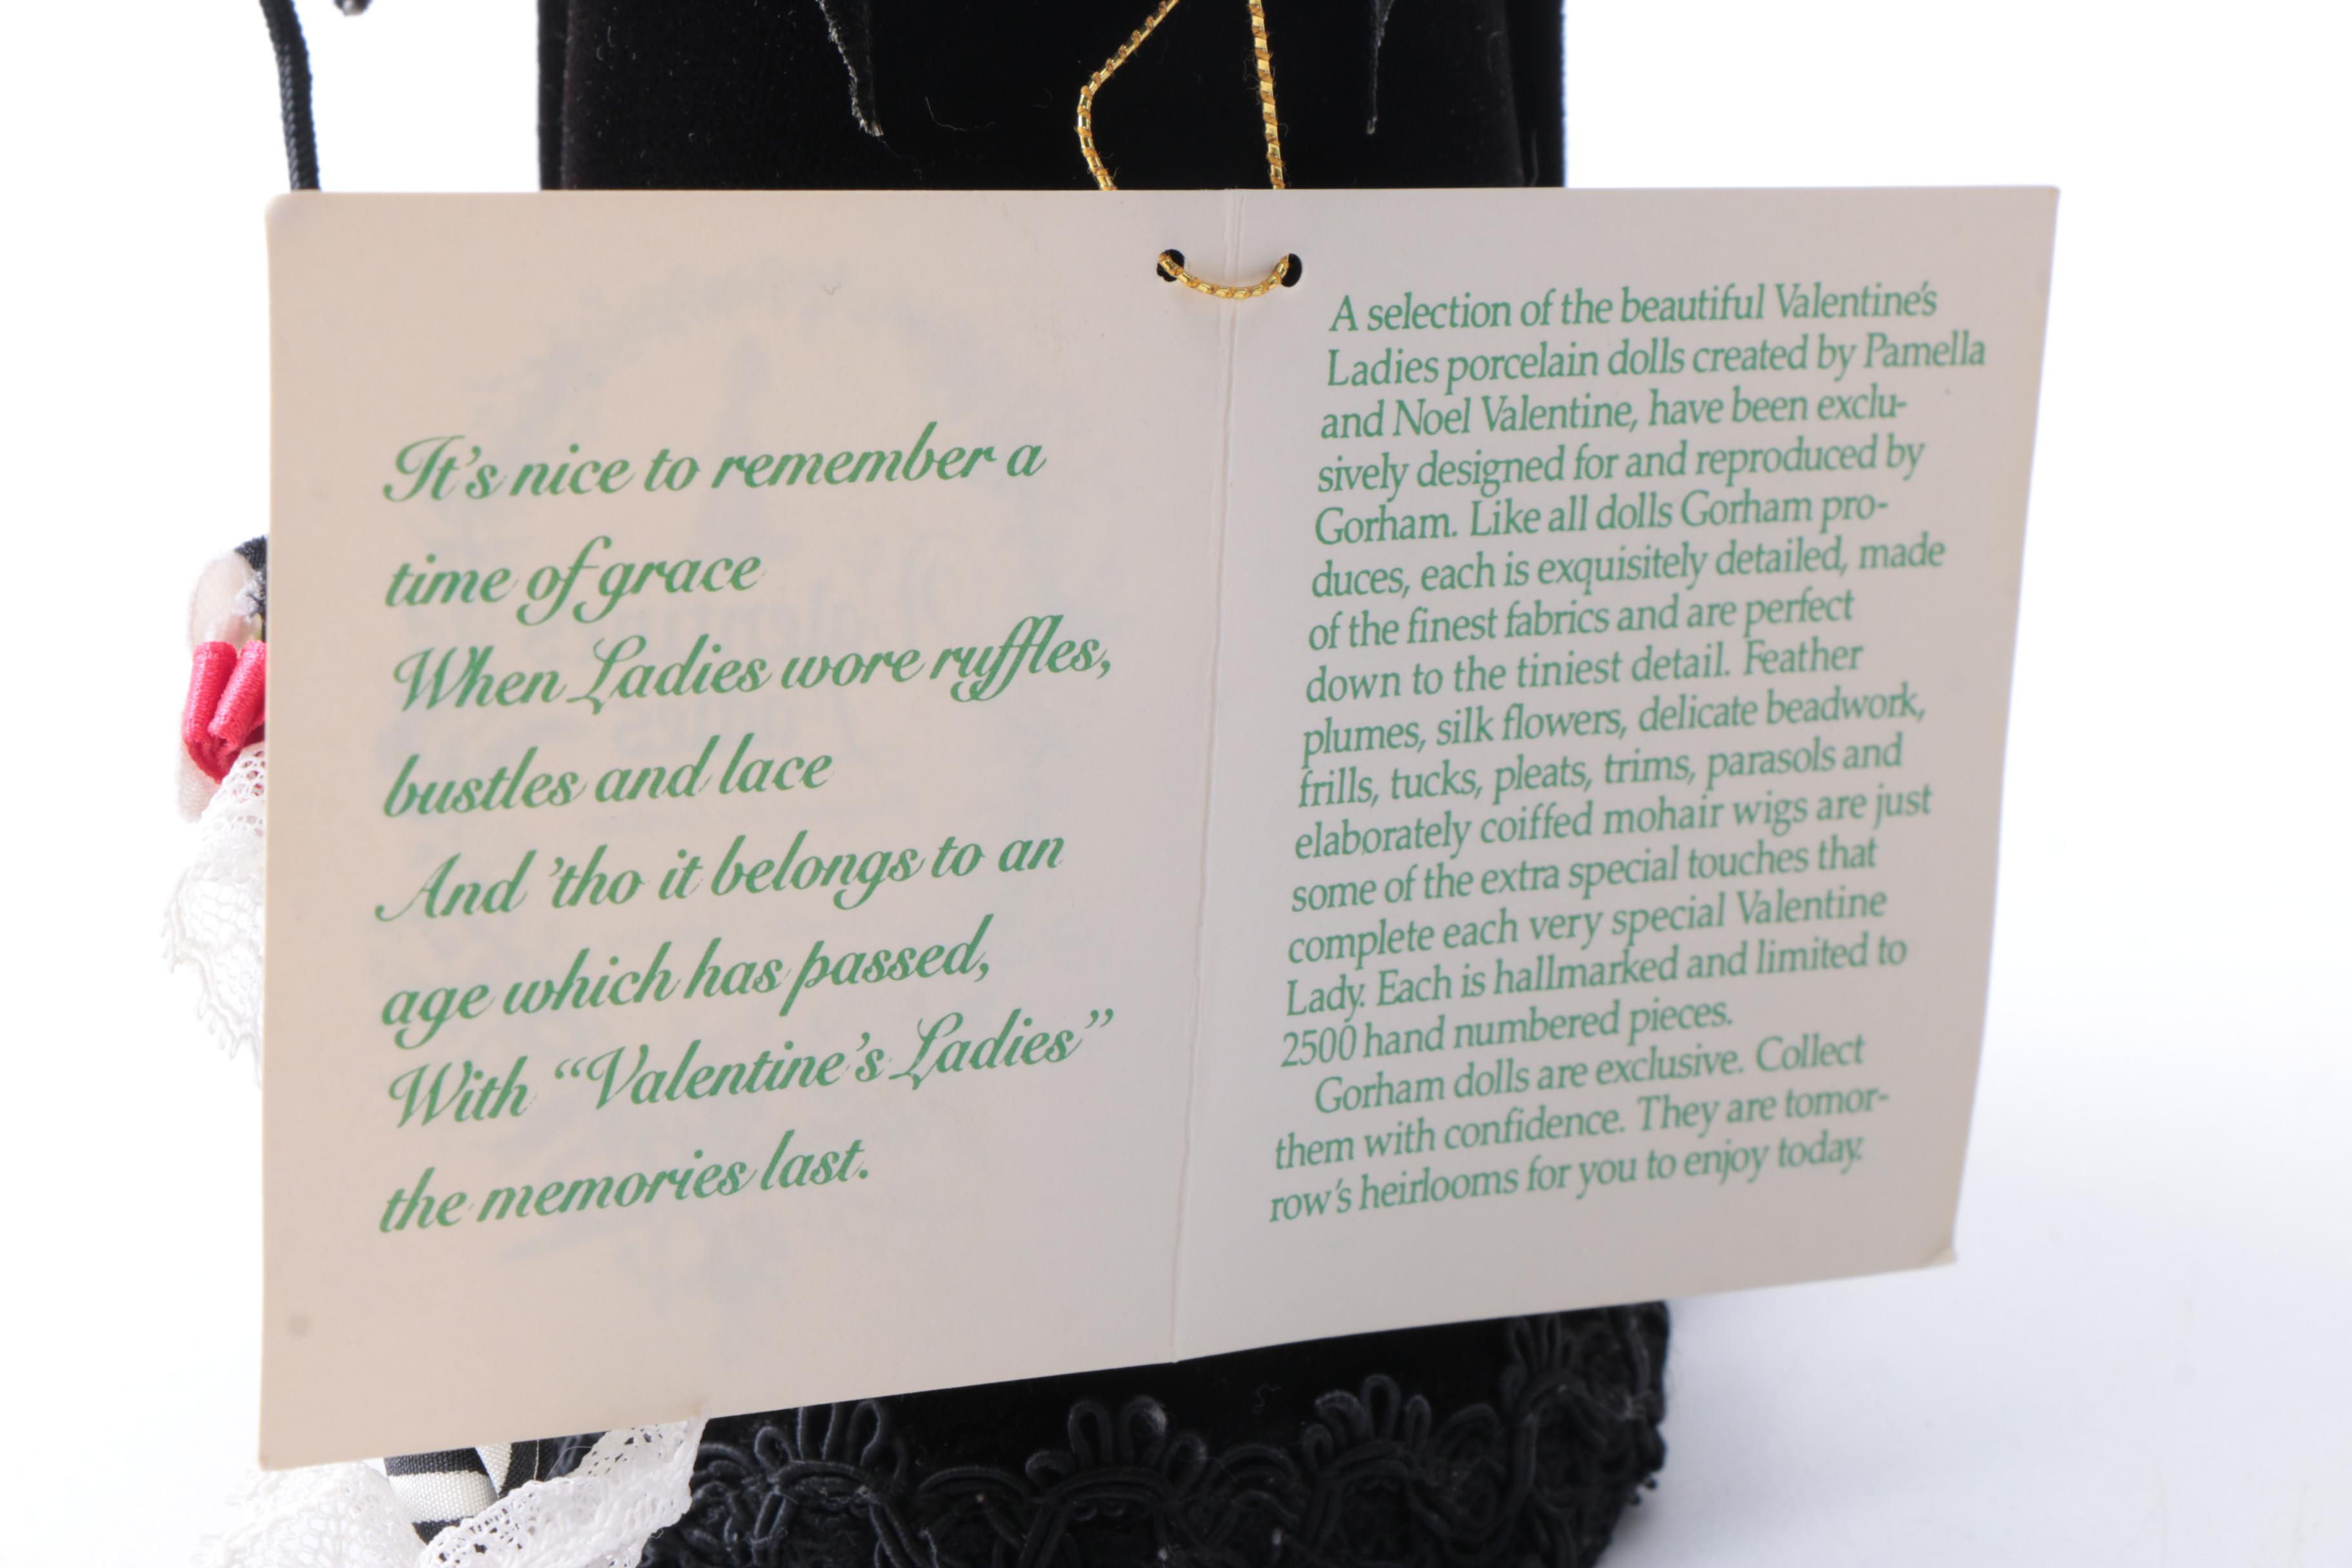 It's nice to remember a
time of grace
When Ladies wore ruffles,
bustles and lace
And 'tho it belongs to an
age which has passed,
With “Valentine's Ladies”
the memories last.
A selection of the beautiful Valentine's
Ladies porcelain dolls created by Pamella
and Noel Valentine, have been exclu-
sively designed for and reproduced by
Gorham. Like all dolls Gorham pro-
duces, each is exquisitely detailed, made
of the finest fabrics and are perfect
down to the tiniest detail. Feather
plumes, silk flowers, delicate beadwork,
frills, tucks, pleats, trims, parasols and
elaborately coiffed mohair wigs are just
some of the extra special touches that
complete each very special Valentine
Lady. Each is hallmarked and limited to
2500 hand numbered pieces.
Gorham dolls are exclusive. Collect
them with confidence. They are tomor-
row's heirlooms for you to enjoy today.